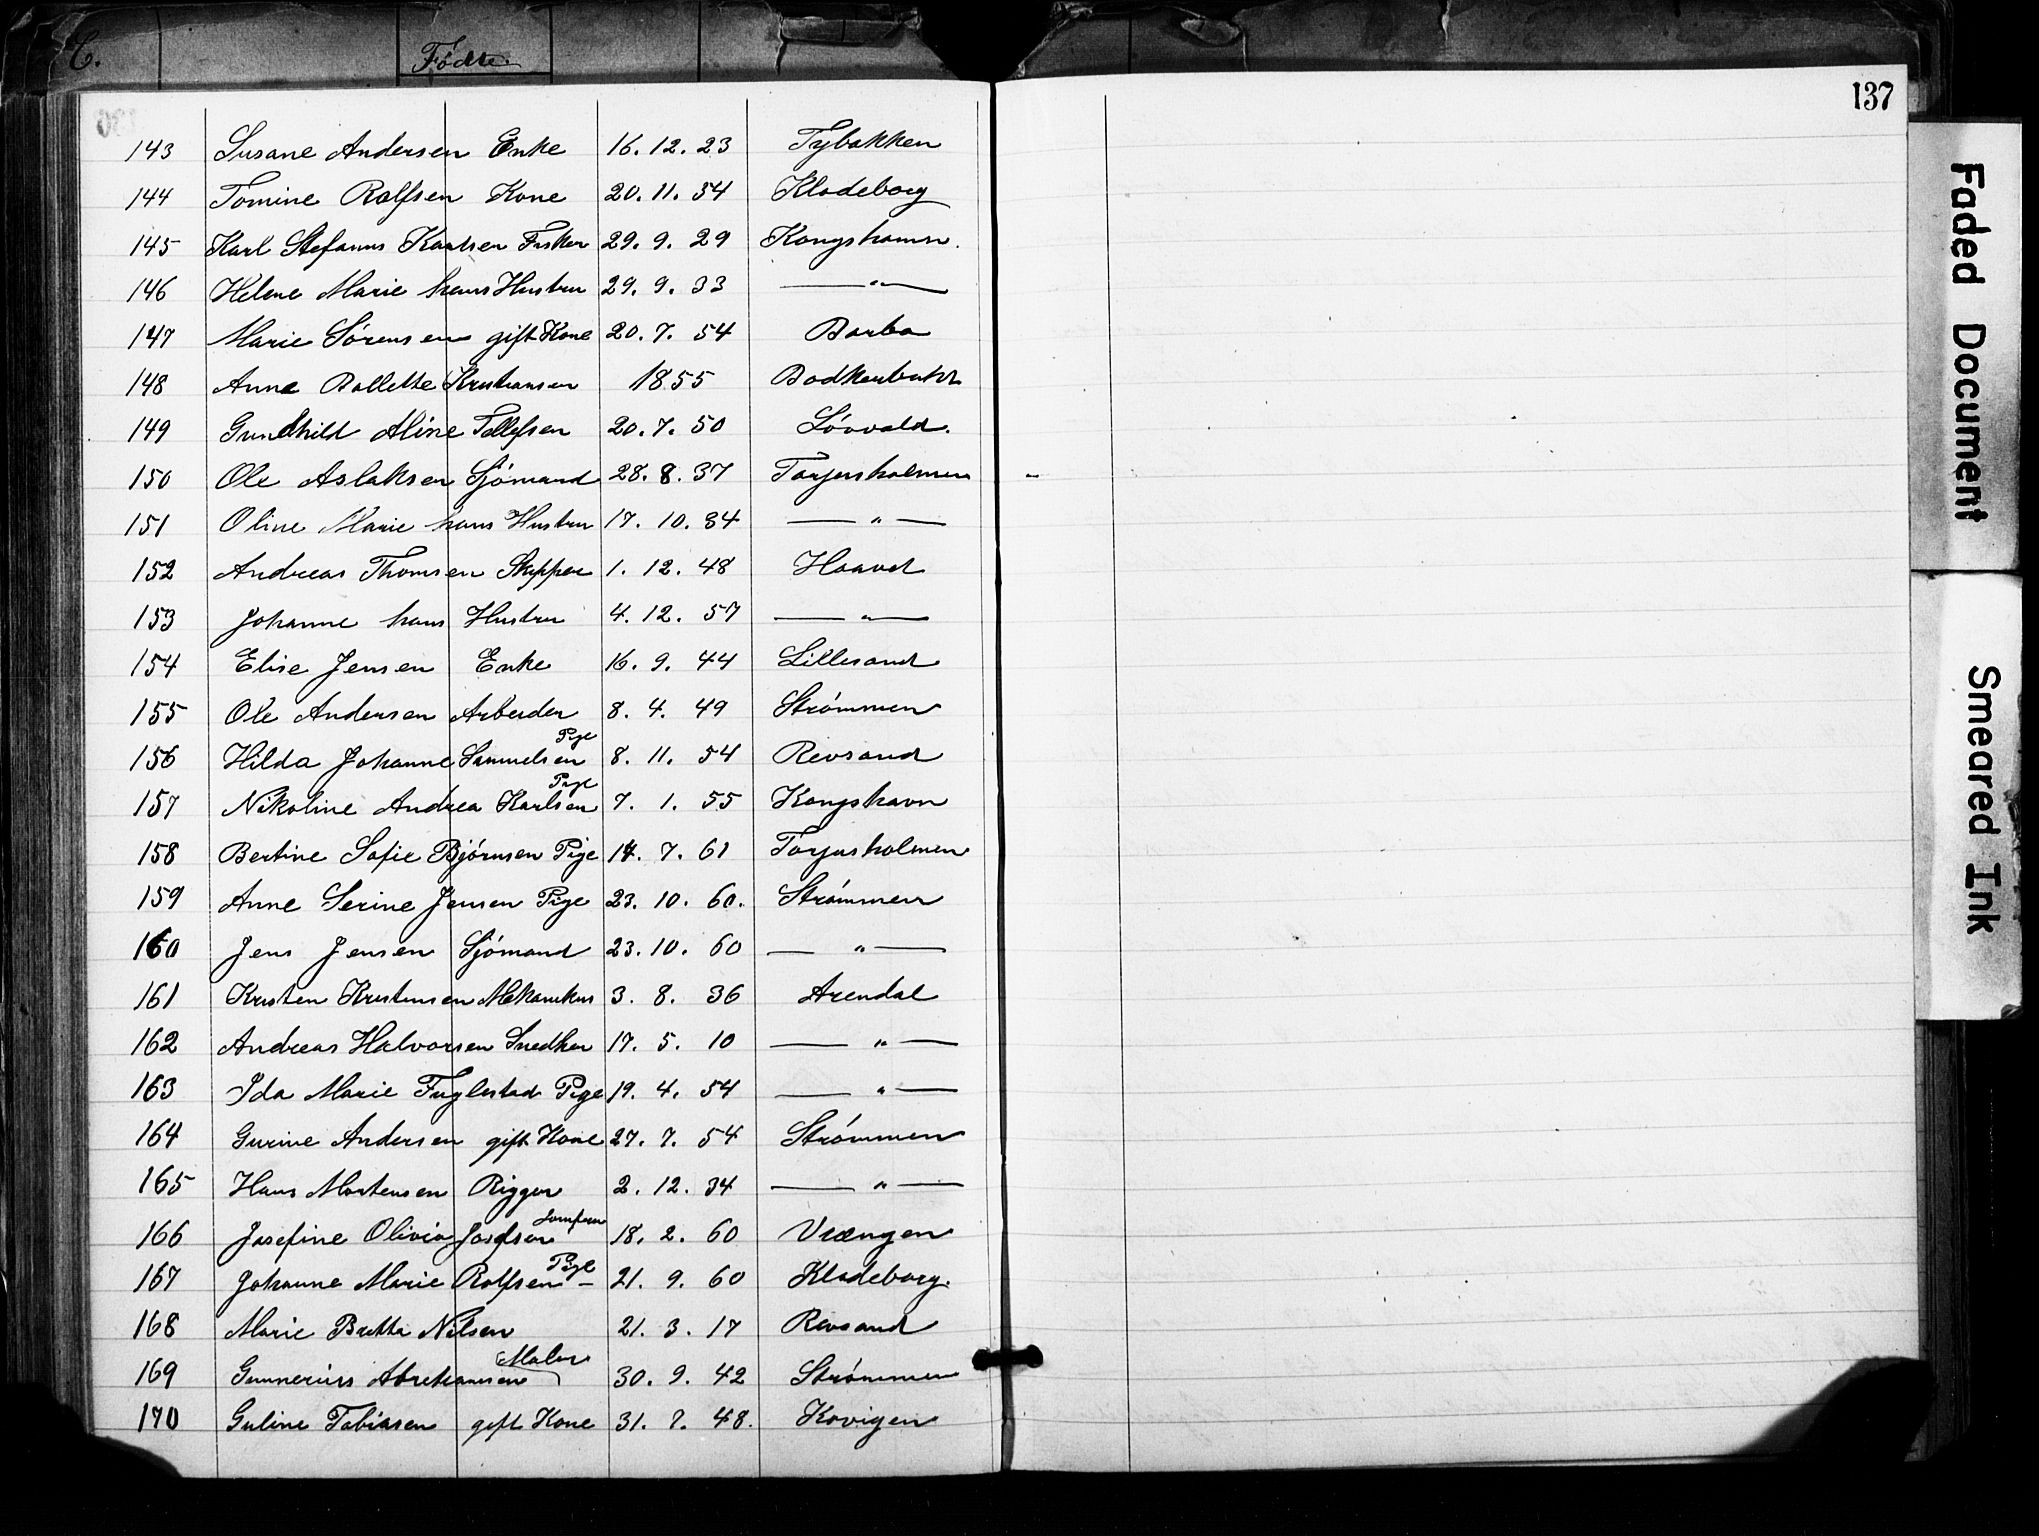 C.
Fødte.
137
143 Susane Andersen Enke 16. 12. 23 Tybakken
144 Tomine Rolfsen Kone 20. 11. 34 Klodeborg
145 Karl Stefanus Fisker 29. 9. 29 Kongshamn.
146 Helene Marie hans Hustru 29. 9. 33 — " —
147 Marie Sørensen gift Kone 20. 7. 54 Barbo
148 Anne Bollette Kristiansen 1855
149 Gundhild Aline Tellefsen 20. 7. 50 Løvvold.
150 Ole Aslaksen Sjømand 28. 8. 37 Torjusholmen
151 Oline Marie hans Hustru 17. 10. 34 — " —
152 Andreas Thomsen Skipper 1. 12. 48 Haavet
153 Johanne hans Hustru 4. 12. 57 — " —
154 Elise Jensen Enke 16. 9. 44 Lillesand
155 Ole Andersen Arbeider 8. 4. 49 Strømmen
156 Hilda Johanne Samuelsen Pige 8. 11. 54 Revsand
157 Nikoline Andrea Karlsen Pige 7. 1. 55 Kongshavn
158 Bertine Sofie Bjørnsen Pige 14. 7. 61 Torjusholmen
159 Anne Serine Jensen Pige 23. 10. 60. Strømmen
160 Jens Jensen Sjømand 23. 10. 60 — " —
161 Kristen Kristensen Mekanikus 3. 8. 36 Arendal
162 Andreas Halvorsen Snedker 17. 5. 10 — " —
163 Ida Marie Fuglestad Pige 19. 4. 54 — " —
164 Gurine Andersen gift Kone 27. 7. 54 Strømmen
165 Hans Mortensen Rigger 2. 12. 34 — " —
166 Josefine Olivia Josefsen Jomfru 18. 2. 60 Vrængen
167 Johanne Marie Rolfsen Pige — 21. 9. 60 Klodeborg.
168 Marie Britta Nilsen 21. 3. 17 Revsand
169 Gunnerius Abrehamsen Maler 30. 9. 42 Strømmen
170 Guline Tobiasen gift Kone 31. 7. 48. Kovigen
Faded Document
Smeared Ink